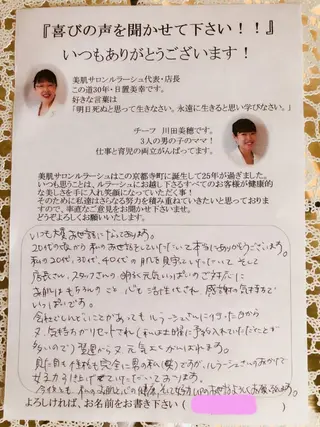 『喜びの声を聞かせて下さい！！』
いつもありがとうございます！
美肌サロンルラーシュ代表・店長
この道30年・日置美幸です。
好きな言葉は
「明日死ぬと思って生きなさい。永遠に生きると思い学びなさい。」
チーフ 川田美穂です。
3人の男の子のママ！
仕事と育児の両立がんばってます。
美肌サロンルラーシュはこの京都寺町に誕生して25年が過ぎました。
いつも思うことは、ルラーシュにお越し下さるすべてのお客様が健康的
な美しさを手に入れ笑顔になっていただく事！
そのために私達はさらなる努力を積み重ねていきたいと思っておりま
すので、率直なご意見をお聞かせ下さいませ。
どうぞよろしくお願いいたします。
いつも大変お世話になっております。
20代の頃から私のお世話をしていただいて本当にありがとうございます。
私の20代、30代、40代の肌を見守っていただいて そして
店長さん、スタッフさんの明るく元気いっぱいのご対応に
お肌はもちろんのこと 心も活性化され 感謝の気持ちで
いっぱいです。
会社でしんどいことがあっても ルラーシュさんに行った日から
又、気持ちがリセットされ（私は土曜に予約を入れていただくことが
多いので）翌週から又元気よくがんばれます。
見た目も性格も完全に男の私（笑）ですが、ルラーシュさんのおかげで
女子力を引き上げていただいております。
よろしければ、お名前をお書き下さい（